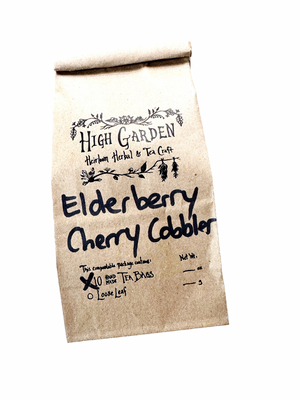 High Garden
Heirloom Herbal & Tea Craft
Elderberry
Cherry Cobbler
This compostable package contains: Net Wt.
X 10 Tea Bags __ oz
O Loose Leaf __ g